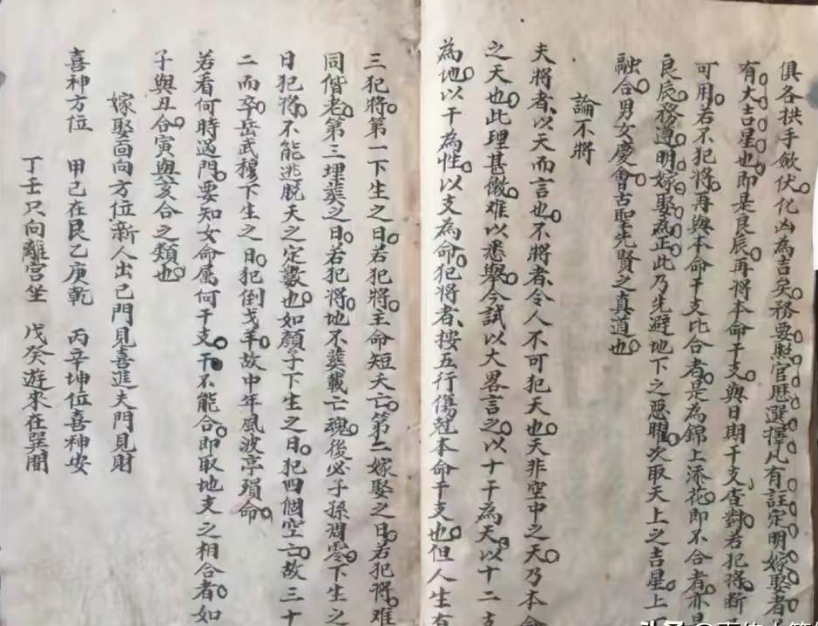 俱各拱手斂伏化凶為吉矣務要照官曆選擇凡有註定明嫁娶者
有大吉星也即是良辰再將本命干支與日期干支查對若犯將斷
可用若不犯將再與本命干支比合者是為錦上添花即不合者亦是
良辰務遵明嫁娶為正此乃先避地下之惡曜次取天上之吉星上
融合男女慶會古聖先賢之真道也
論不將
夫將者以天而言也不將者令人不可犯天也天非空中之天乃本命
之天也此理甚微難以悉舉今試以大畧言之以十干為天以十二支
為地以干為性以支為命犯將者按五行傷尅本命干支也但人生有
三犯將第一下生之日若犯將主命短夭亡第二嫁娶之日若犯將難
同偕老第三埋葬之日若犯將地不葬載亡魂後必子孫凋零下生之
日犯將不能逃脫天之定數也如顏子下生之日犯四個空亡故三十
二而卒岳武穆下生之日犯倒戈羊故中年風波亭殞命
若看何時過門要知女命屬何干支干不能合即取地支之相合者如
子與丑合寅與亥合之類也
嫁娶面向方位新人出己門見喜進夫門見財
喜神方位 甲己在艮乙庚乾 丙辛坤位喜神安
丁壬只向離宮坐 戊癸遊來在巽間